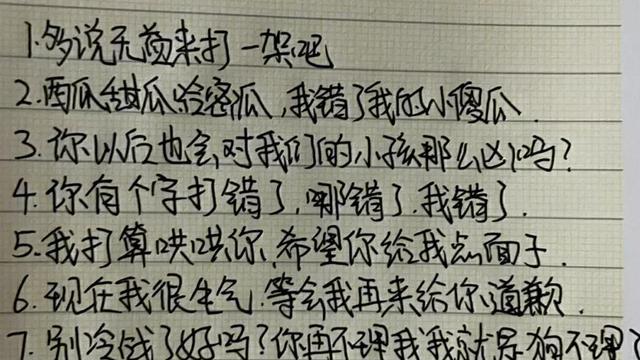 1.多说无益来打一架吧
2.西瓜甜瓜哈密瓜,我错了我的小傻瓜.
3.你以后也会对我们的小孩那么凶吗?
4.你有个字打错了,哪错了.我错了.
5.我打算哄哄你,希望你给我点面子.
6.现在我很生气.等会我再来给你道歉.
7.别冷战了好吗?你再不理我我就是狗不理